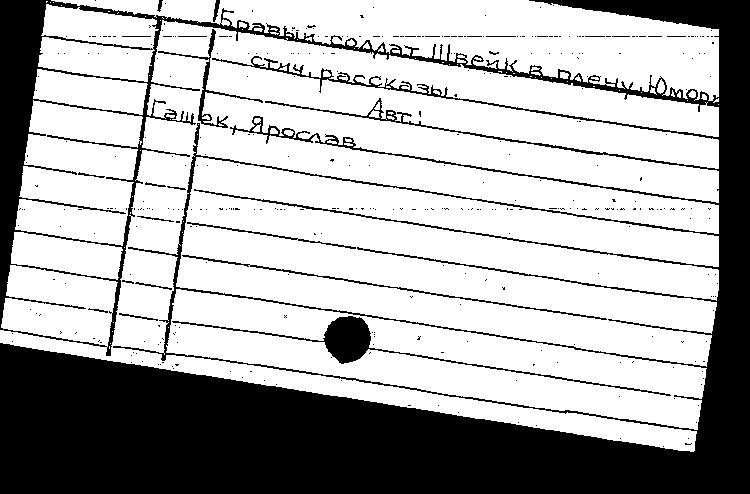 Бравый солдат Швейк в плену. Юмори
стич. рассказы.
Авт.:
Гашек, Ярослав